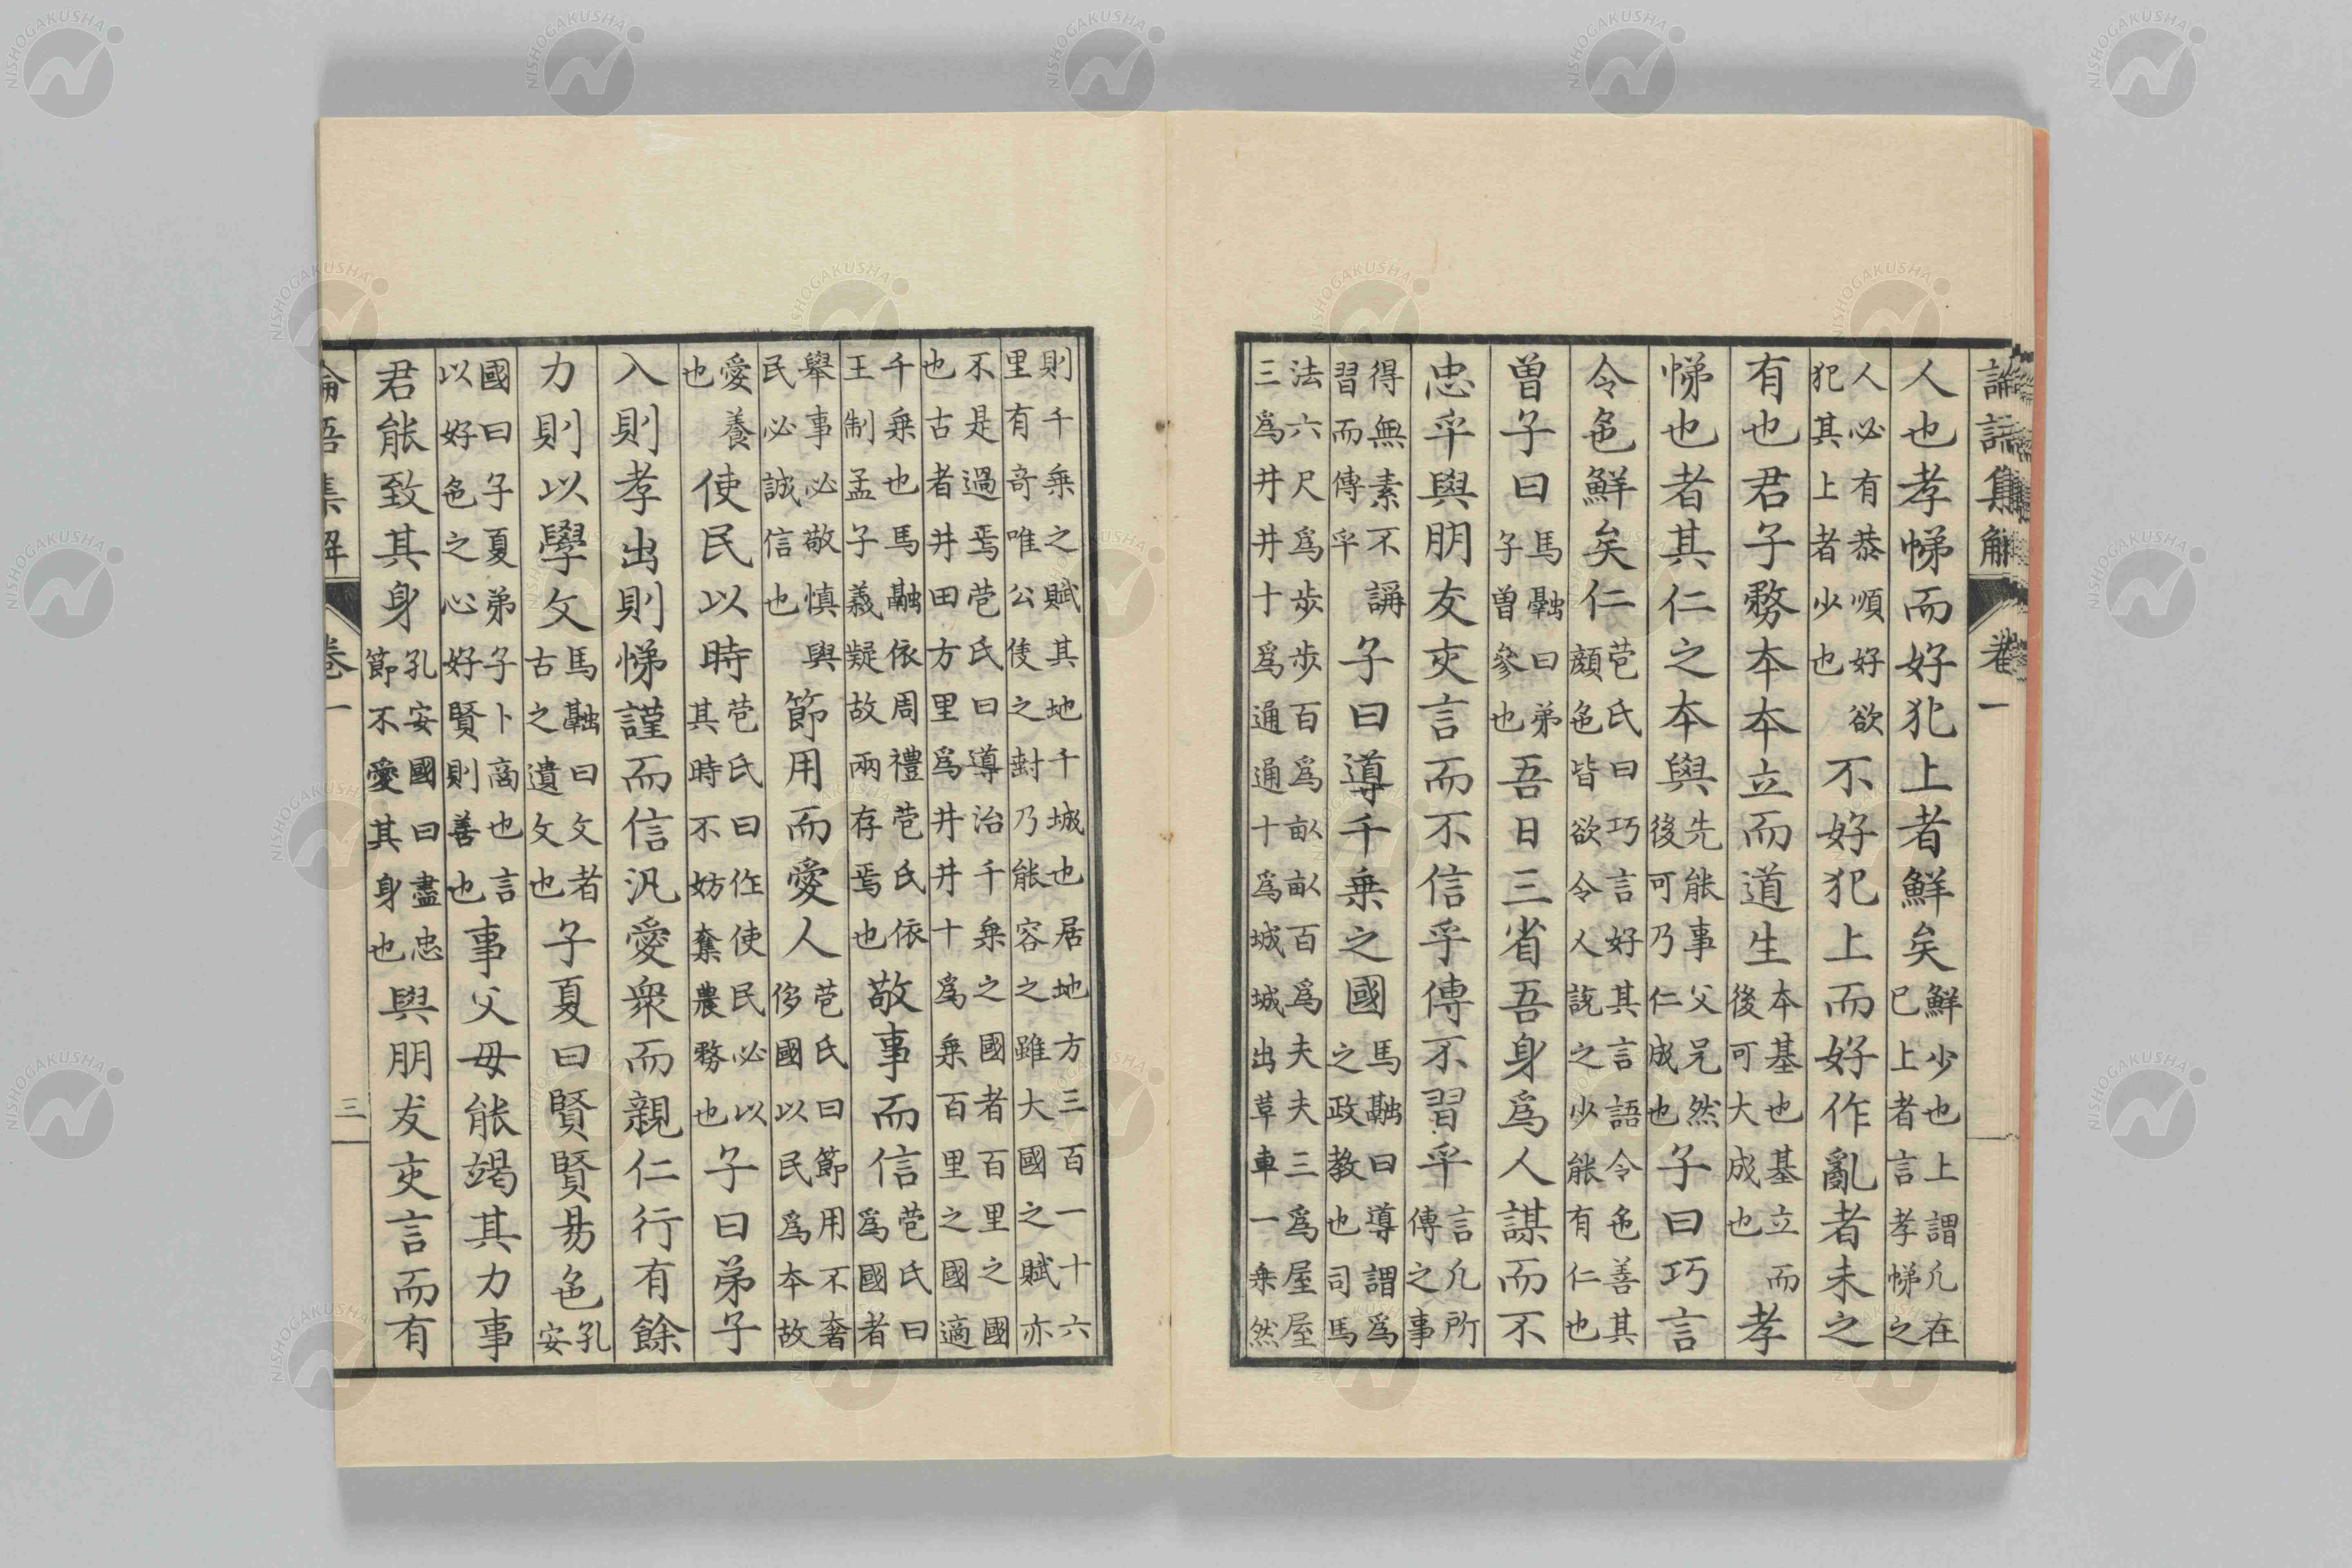 論語集解 卷一
人也孝悌而好犯上者鮮矣鮮少也上謂凡在已上者言孝悌之
人必有恭順好欲犯其上者少也不好犯上而好作亂者未之
有也君子務本本立而道生本基也基立而後可大成也孝
悌也者其仁之本與先能事父兄然後可乃仁成也子曰巧言
令色鮮矣仁苞氏曰巧言好其言語令色善其顔色皆欲令人說之少能有仁也
曽子曰馬融曰弟子曽參也吾日三省吾身爲人謀而不
忠乎與朋友交言而不信乎傳不習乎言凡所傳之事
得無素不講習而傳乎子曰導千乗之國馬融曰導謂爲之政教也司馬
法六尺爲步步百爲畝畝百爲夫夫三爲屋屋三爲井井十爲通通十爲城城出革車一乗然
則千乗之賦其地千城也居地方三百一十六里有竒唯公侯之封乃能容之雖大國之賦亦
不是過焉苞氏曰導治千乗之國者百里之國也古者井田方里爲井井十爲乗百里之國適
千乗也馬融依周禮苞氏依王制孟子義疑故兩存焉也敬事而信苞氏曰爲國者
舉事必敬慎與民必誠信也節用而愛人苞氏曰節用不奢侈國以民爲本故
愛養也使民以時苞氏曰作使民必以其時不妨奪農務也子曰弟子
入則孝出則悌謹而信汎愛衆而親仁行有餘
力則以學文馬融曰文者古之遺文也子夏曰賢賢易色孔安
國曰子夏弟子卜商也言以好色之心好賢則善也事父母能竭其力事
君能致其身孔安國曰盡忠節不愛其身也與朋友交言而有
論語集解 卷一 三